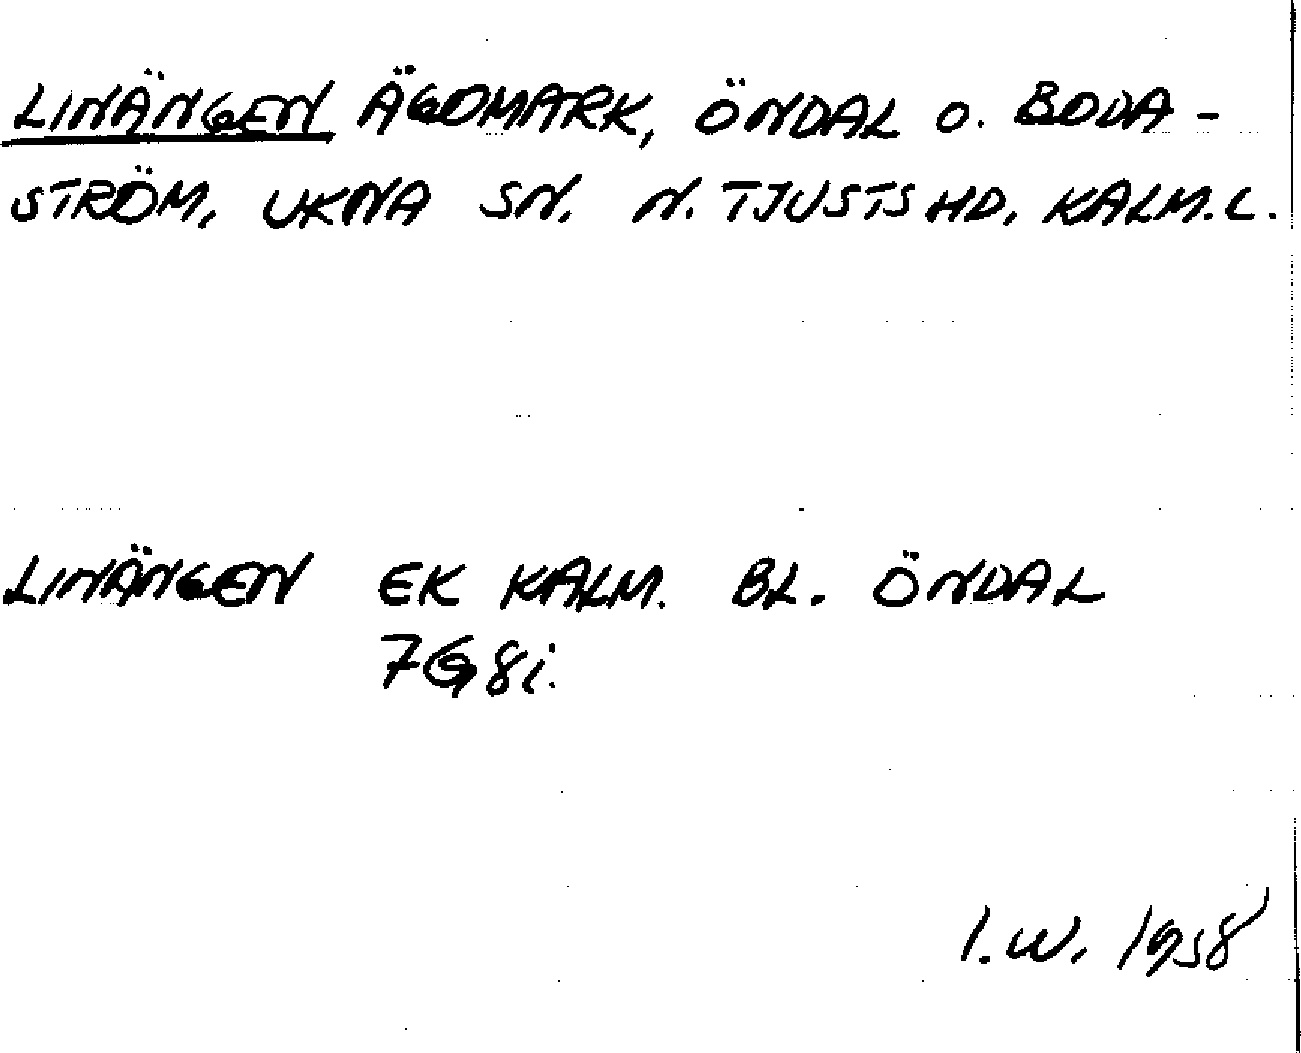 LINÄNGEN ÄGOMARK, ÖNDAL O. BODA-
STRÖM, UKNA SN. N. TJUSTS HD, KALM. L.
LINÄNGEN EK KALM. BL. ÖNDAL
7G8i.
I.W. 1958